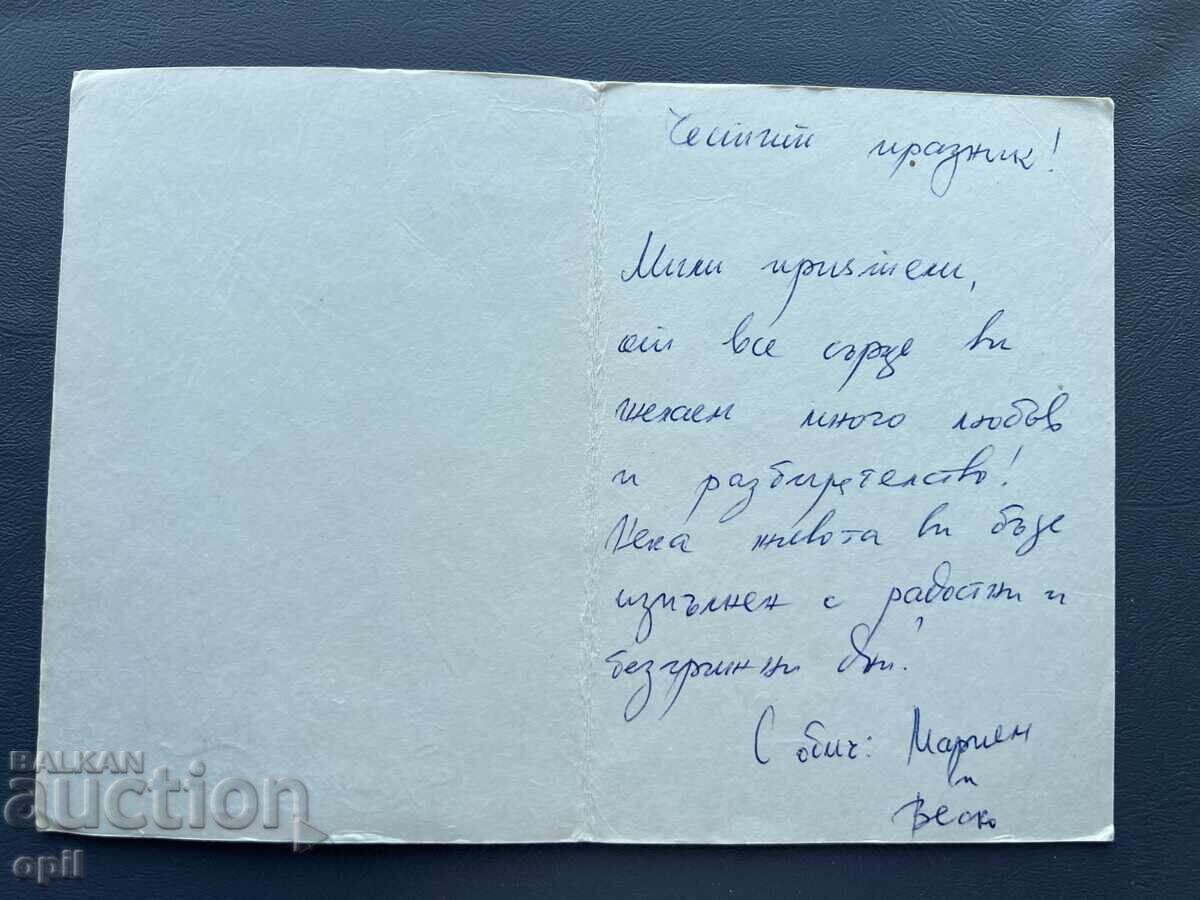 Честит празник!
Мили приятели,
от все сърце ви
желаем много любов
и разбирателство!
Нека живота ви бъде
изпълнен с радостни и
безгрижни дни!
С обич: Мариен
и
Веско
BALKAN
auction
opil